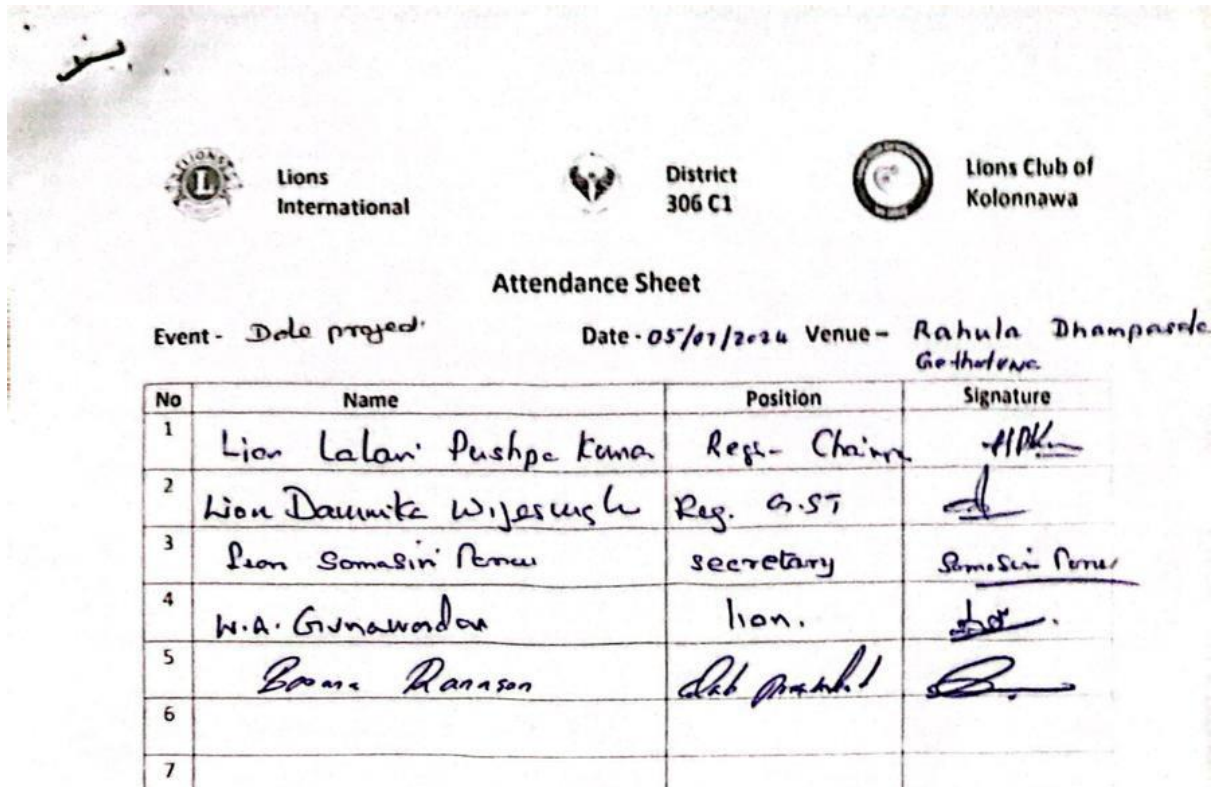 Lions International
District 306 C1
Lions Club of Kolonnawa
Attendance Sheet
Event - Dole project. Date - 05/07/2024 Venue - Rahula Dhampasde
Gothatuwa
No Name Position Signature
1 Lion Lalani Pushpa Kuma Regi- Chairp
2 Lion Daumika Wijesingh Reg. G.ST
3 Lion Somasiri Perera secretary Somasiri Perera
4 W.A. Gunawardan lion.
5 Ranason club president
6
7